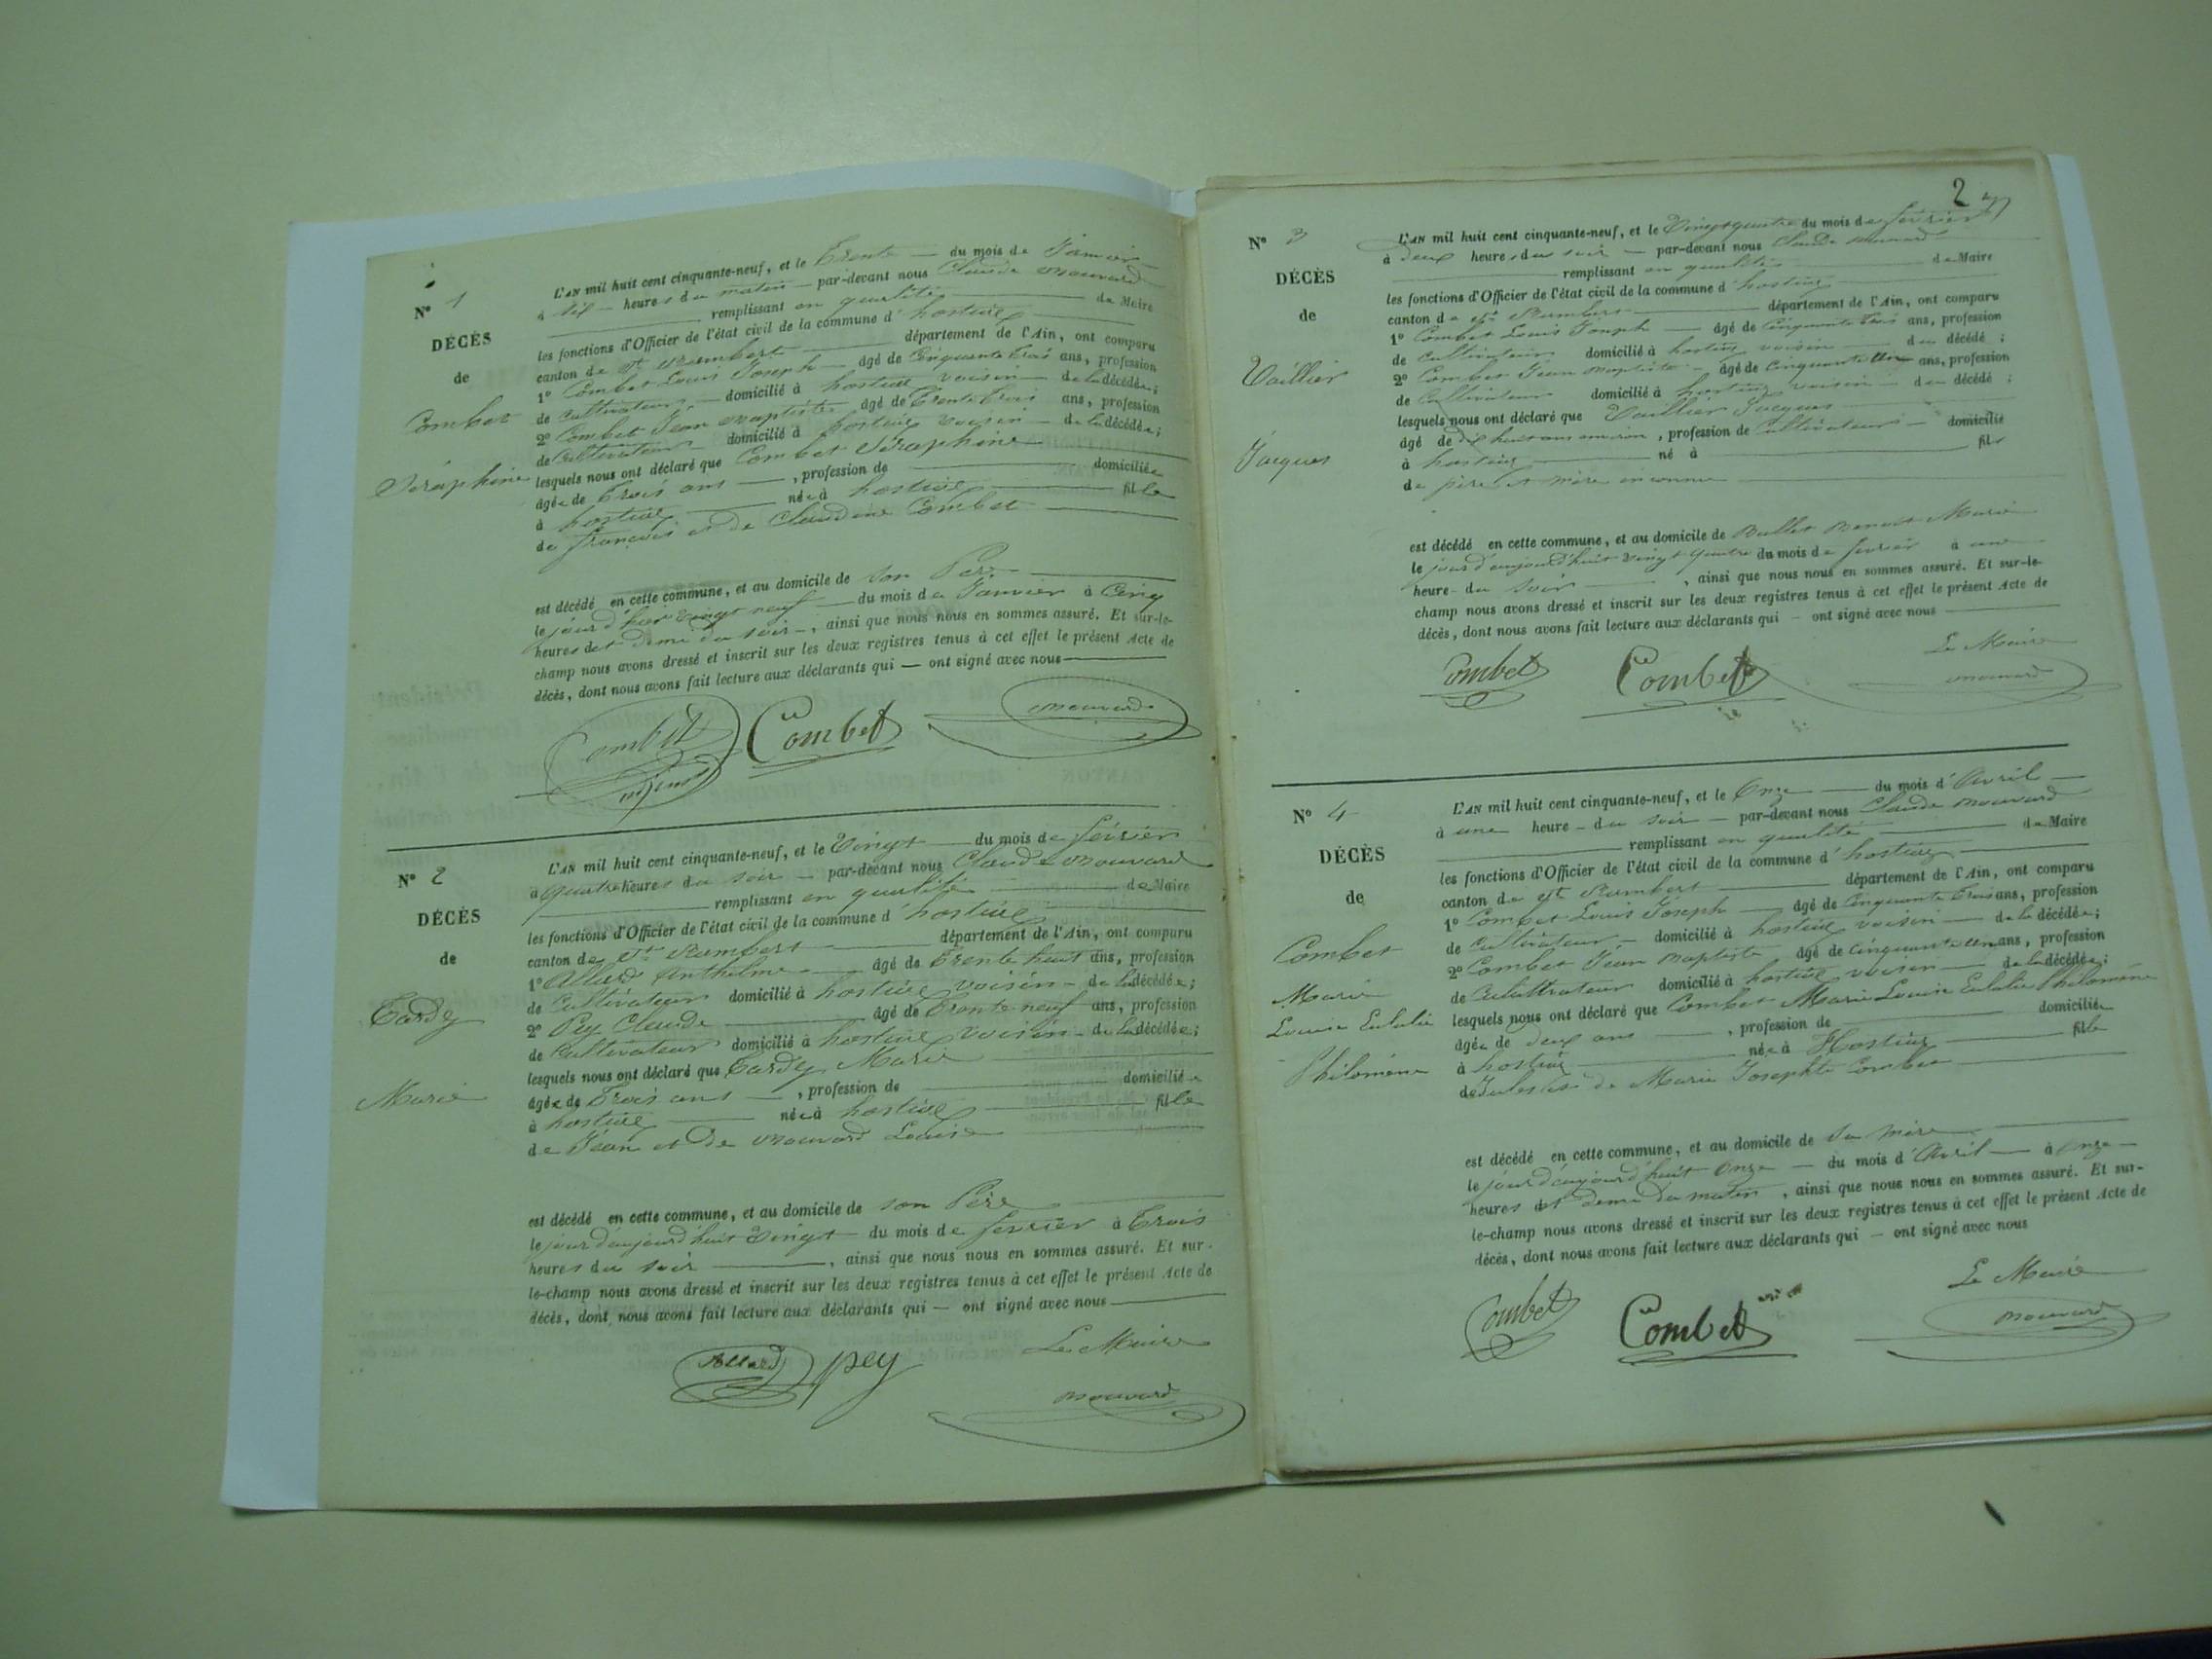 N° 1
DÉCÈS
de
Combet
Séraphine
L'AN mil huit cent cinquante-neuf, et le Trente du mois de Janvier
à dix heures du matin par-devant nous Claude Mouvard
remplissant en qualité de Maire
les fonctions d'Officier de l'état civil de la commune d'hostiaz
canton de St Rambert département de l'Ain, ont comparu
1° Combet Louis Joseph âgé de Cinquante trois ans, profession
de Cultivateur domicilié à hostiaz voisin de la décédée;
2° Combet Jean Baptiste âgé de Trente trois ans, profession
de Cultivateur domicilié à hostiaz voisin de la décédée;
lesquels nous ont déclaré que Combet Séraphine
âgée de Trois ans, profession de domiciliée
à hostiaz née à hostiaz fille
de françois et de Claudine Combet
est décédé en cette commune, et au domicile de son Père
le jour d'hier vingt neuf du mois de Janvier à Cinq
heures et demi du soir, ainsi que nous nous en sommes assuré. Et sur-le-
champ nous avons dressé et inscrit sur les deux registres tenus à cet effet le présent Acte de
décès, dont nous avons fait lecture aux déclarants qui ont signé avec nous
Combet Combet Mouvard
N° 2
DÉCÈS
de
Tardy
Marie
L'AN mil huit cent cinquante-neuf, et le Vingt du mois de février
à quatre heures du soir par-devant nous Claude Mouvard
remplissant en qualité de Maire
les fonctions d'Officier de l'état civil de la commune d'hostiaz
canton de St Rambert département de l'Ain, ont comparu
1° Allard Anthelme âgé de Trente huit ans, profession
de Cultivateur domicilié à hostiaz voisin de la décédée;
2° Pey Claude âgé de Trente neuf ans, profession
de Cultivateur domicilié à hostiaz voisin de la décédée;
lesquels nous ont déclaré que Tardy Marie
âgée de Trois ans, profession de domiciliée
à hostiaz née à hostiaz fille
de Jean et de Mouvard Louise
est décédé en cette commune, et au domicile de son Père
le jour d'aujourd'huit Vingt du mois de fevrier à Trois
heures du soir, ainsi que nous nous en sommes assuré. Et sur-
le-champ nous avons dressé et inscrit sur les deux registres tenus à cet effet le présent Acte de
décès, dont nous avons fait lecture aux déclarants qui ont signé avec nous
Le Maire
Allard pey
Mouvard
2
N° 3
DÉCÈS
de
Vaillier
Jacques
L'AN mil huit cent cinquante-neuf, et le Vingt quatre du mois de février
à deux heures du soir par-devant nous Claude Mouvard
remplissant en qualité de Maire
les fonctions d'Officier de l'état civil de la commune d'hostiaz
canton de St Rambert département de l'Ain, ont comparu
1° Combet Louis Joseph âgé de Cinquante trois ans, profession
de Cultivateur domicilié à hostiaz voisin du décédé;
2° Combet Jean Baptiste âgé de Cinquante un ans, profession
de Cultivateur domicilié à hostiaz voisin du décédé;
lesquels nous ont déclaré que Vaillier Jacques
âgé de dix huit ans environ, profession de Cultivateur domicilié
à hostiaz né à fils
de père et mère inconnu
est décédé en cette commune, et au domicile de Ballet Benoit Marie
le jour d'aujourd'huit vingt quatre du mois de fevrier à une
heure du soir, ainsi que nous nous en sommes assuré. Et sur-le-
champ nous avons dressé et inscrit sur les deux registres tenus à cet effet le présent Acte de
décès, dont nous avons fait lecture aux déclarants qui ont signé avec nous
Le Maire
Combet Combet Mouvard
N° 4
DÉCÈS
de
Combet
Marie
Louise Eulalie
Philomène
L'AN mil huit cent cinquante-neuf, et le Onze du mois d'Avril
à une heure du soir par-devant nous Claude Mouvard
remplissant en qualité de Maire
les fonctions d'Officier de l'état civil de la commune d'hostiaz
canton de St Rambert département de l'Ain, ont comparu
1° Combet Louis Joseph âgé de Cinquante trois ans, profession
de Cultivateur domicilié à hostiaz voisin de la décédée;
2° Combet Jean Baptiste âgé de Cinquante un ans, profession
de Cultivateur domicilié à hostiaz voisin de la décédée;
lesquels nous ont déclaré que Combet Marie Louise Eulalie Philomène
âgée de deux ans, profession de domiciliée
à hostiaz née à Hostiaz fille
de Marie Josephte Combet
est décédé en cette commune, et au domicile de sa mère
le jour d'aujourd'huit Onze du mois d'Avril à Onze
heures et demi du matin, ainsi que nous nous en sommes assuré. Et sur-
le-champ nous avons dressé et inscrit sur les deux registres tenus à cet effet le présent Acte de
décès, dont nous avons fait lecture aux déclarants qui ont signé avec nous
Le Maire
Combet Combet Mouvard